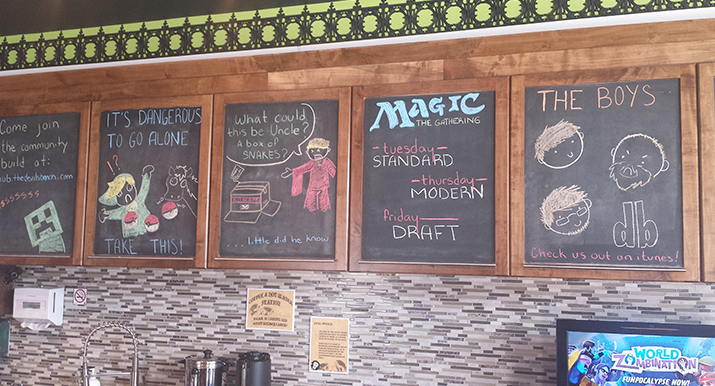 Come join
the community
build at:
$$$$$$
IT'S DANGEROUS
TO GO ALONE
!?
TAKE THIS!
What could
this be Uncle?
A box of
SNAKES?
...Little did he know
MAGIC
THE GATHERING
-tuesday-
STANDARD
-thursday-
MODERN
friday
DRAFT
THE BOYS
db
Check us out on itunes!
STATION
WORLD
ZOMBINATION
FUNPOCALYPSE NOW!